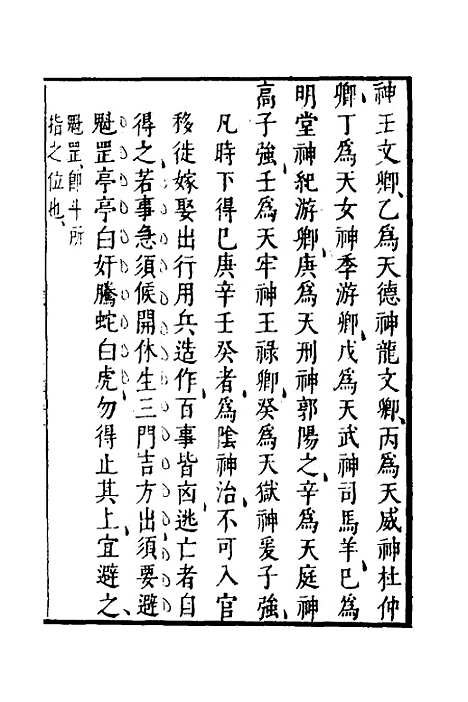 神王文卿乙爲天德神龍文卿丙爲天威神杜仲
卿丁爲天女神季游卿戊爲天武神司馬羊巳爲
明堂神紀游卿庚爲天刑神郭陽之辛爲天庭神
高子強壬爲天牢神王祿卿癸爲天獄神爰子強
凡時下得巳庚辛壬癸者爲陰神治不可入官
移徙嫁娶出行用兵造作百事皆凶逃亡者自
得之若事急須候開休生三門吉方出須要避
魁罡亭亭白奸騰蛇白虎勿得止其上宜避之
魁罡卽斗所
指之位也